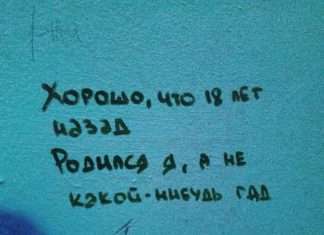 Хорошо, что 18 лет
назад
Родился я, а не
какой-нибудь гад